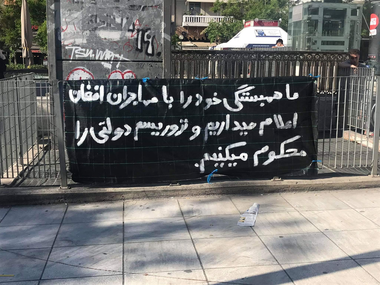 ما همبستگی خود را با مهاجران افغان
اعلام میداریم و تروریسم دولتی را
محکوم میکنیم.